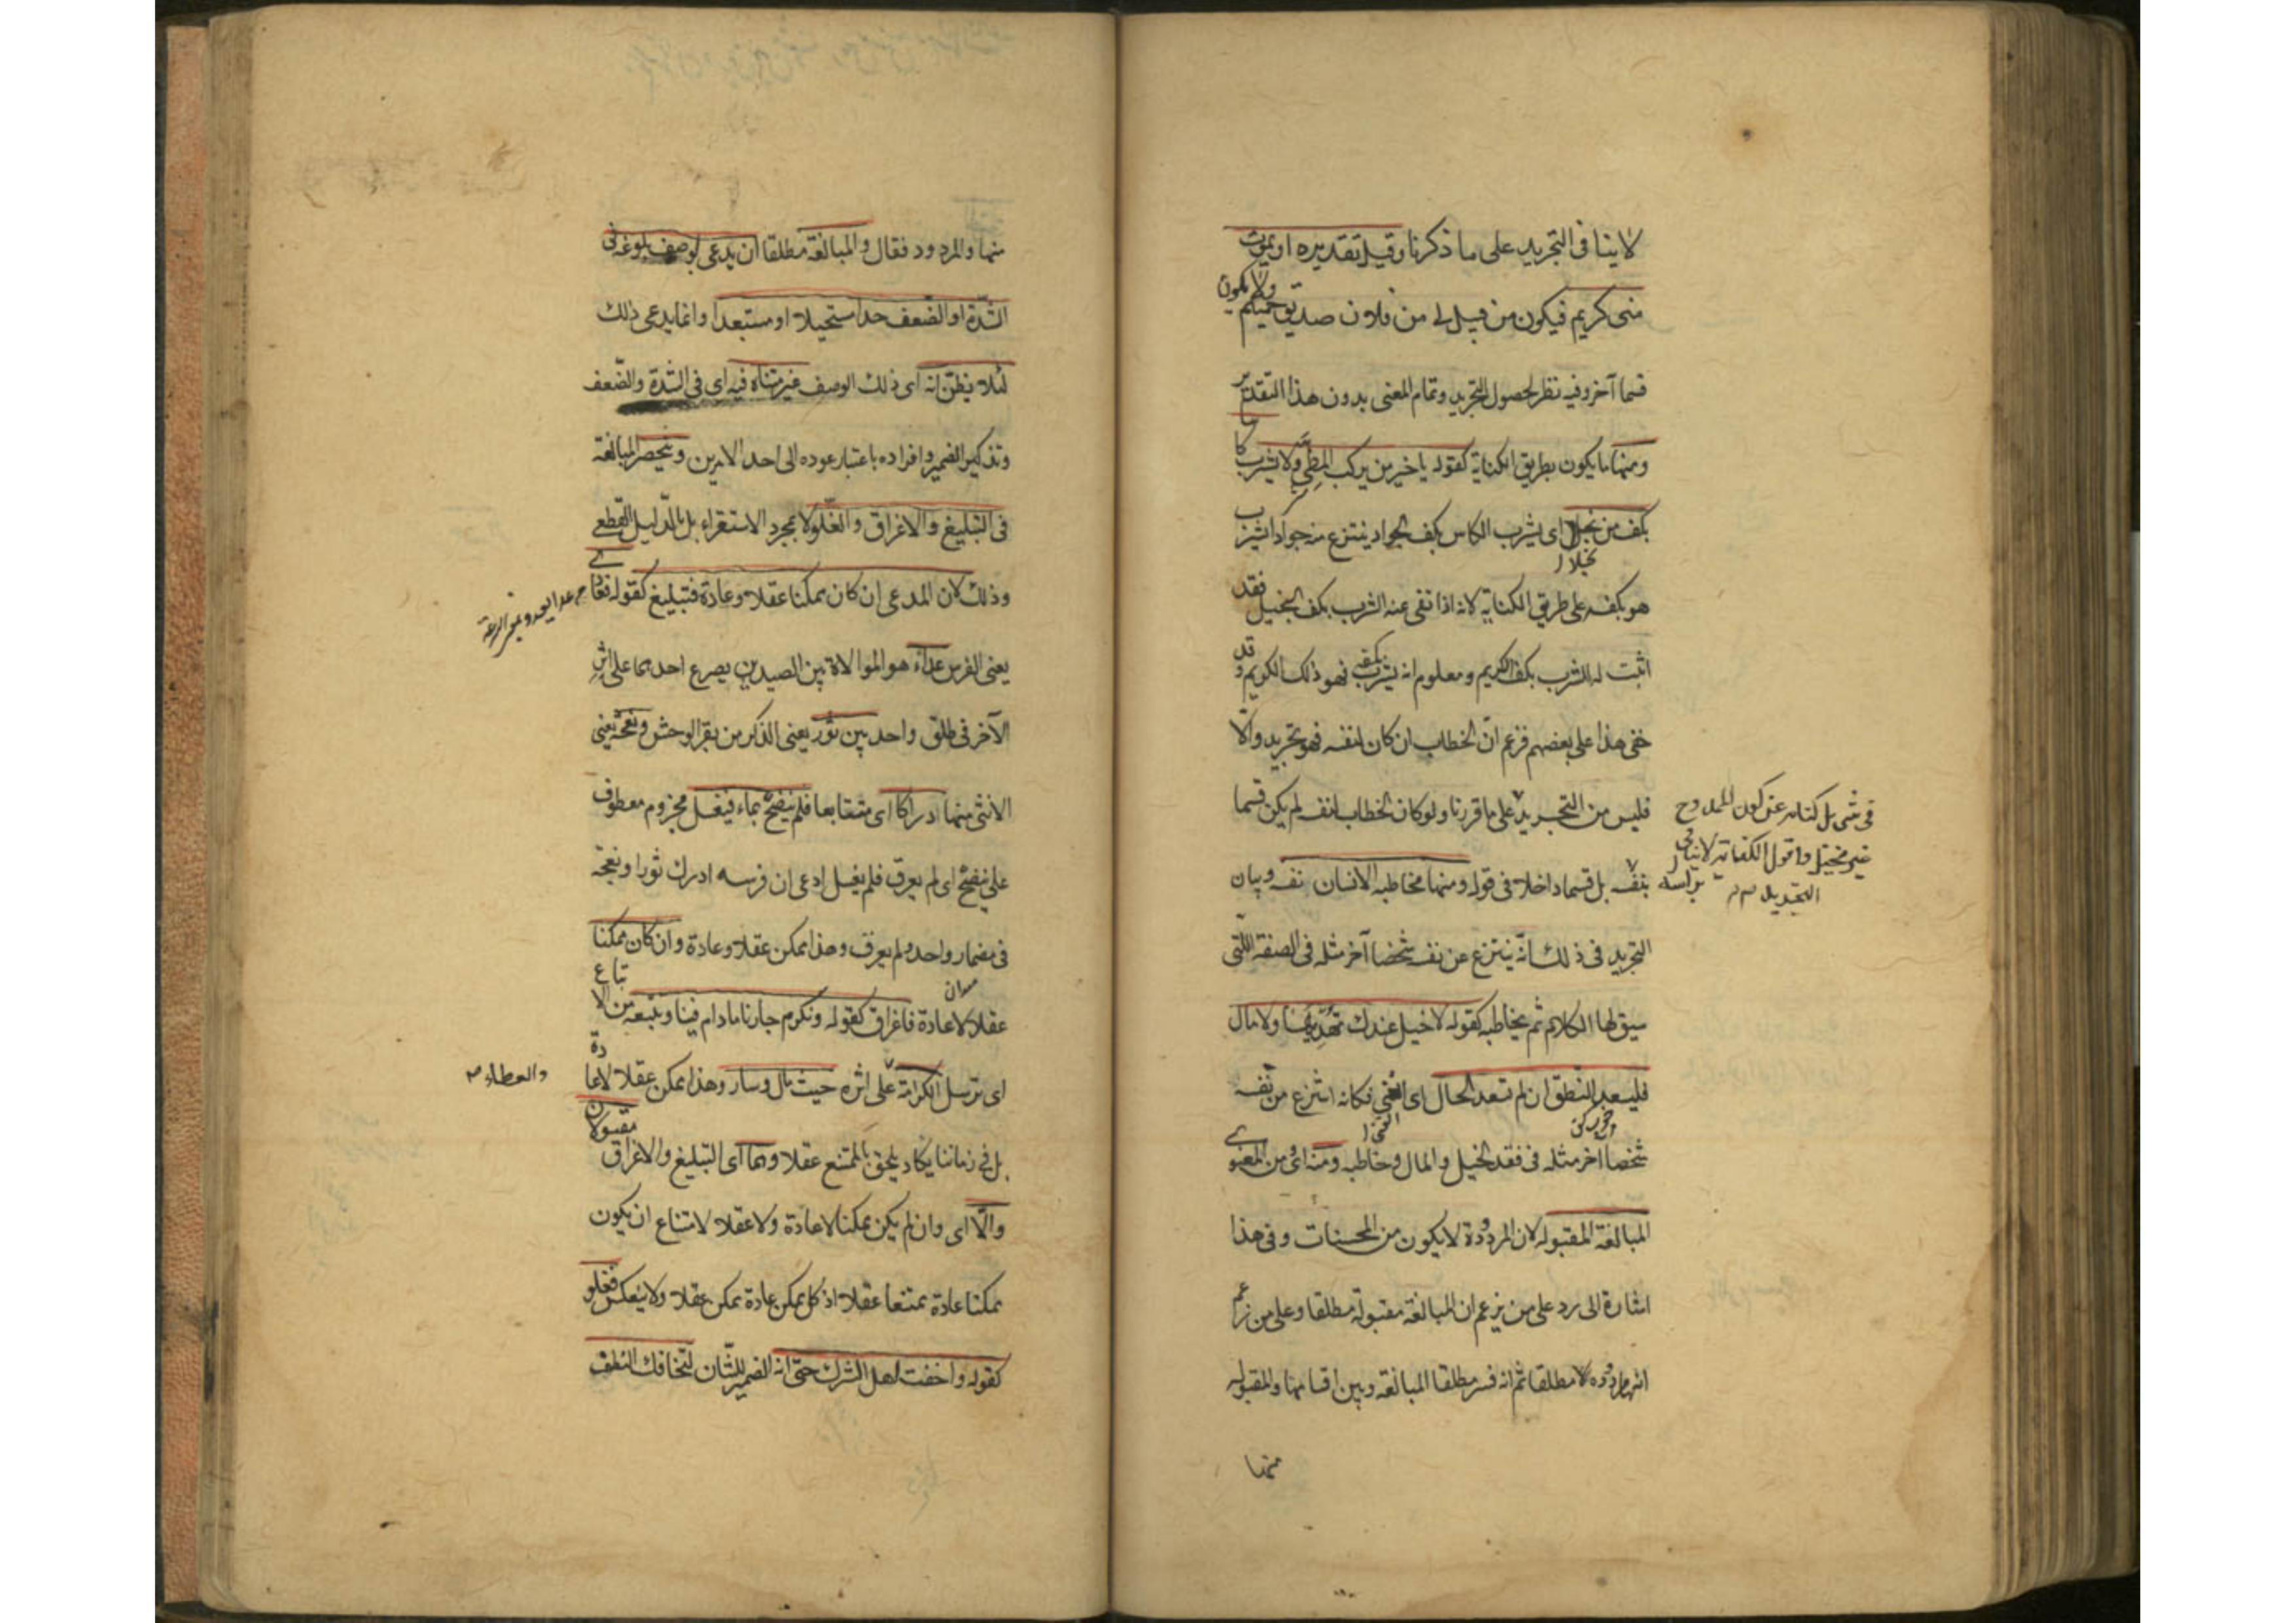 لا ينافى التجريد على ما ذكرنا وقيل تقديره او يموت
منى كريم فيكون من قبيل لى من فلان صديق حميم ولا يكون
قسما آخر وفيه نظر لحصول التجريد وتمام المعنى بدون هذا التقدير
ومنها ما يكون بطريق الكناية كقوله يا خير من يركب المطى ولا يشرب كاسا
بكف من بخلا اى يشرب الكاس بكف الجواد ينتزع منه جوادا يشرب
هو بكفه على طريق الكناية لانه اذا نفى عنه الشرب بكف البخيل فقد
اثبت له الشرب بكف الكريم ومعلوم انه يشرب بكفه فهو ذلك الكريم وقد
خفى هذا على بعضهم فزعم ان الخطاب ان كان لنفسه فهو تجريد والا
فليس من التجريد على ما قررنا ولو كان الخطاب لنفسه لم يكن قسما
فى شى بل كناية عن كون الممدوح
غير بخيل واقول الكناية لا ينافى
التجريد
بنفسه بل قسما داخلا فى قوله ومنها مخاطبة الانسان نفسه وبيان
براسه
التجريد فى ذلك انه ينتزع عن نفسه شخصا آخر مثله فى الصفة اللتى
سيق لها الكلام ثم يخاطبه كقوله لا خيل عندك تهديها ولا مال
فليسعد النطق ان لم تسعد الحال اى الغنى فكانه انتزع من نفسه
شخصا آخر مثله فى فقد الخيل والمال وخاطبه ومنه اى ومن المعنوى
المبالغة المقبولة لان المردودة لا يكون من المحسنات وفى هذا
اشارة الى رد على من يزعم ان المبالغة مقبولة مطلقا وعلى من زعم
انها مردوده لا مطلقا ثم انه فسر مطلقا المبالغة وبين اقسامها والمقبوله
منها
منها والمردود فقال والمبالغة مطلقا ان يدعى لوصف بلوغه فى
الشدة او الضعف حدا مستحيلا او مستبعدا وانما يدعى ذلك
لئلا يظن انه اى ذلك الوصف غير متناه فيه اى فى الشدة والضعف
وتذكير الضمير وافراده باعتبار عوده الى احد الامرين وتنحصر المبالغة
فى التبليغ والاغراق والغلو لا بمجرد الاستقراء بل بالدليل القطعى
وذلك لان المدعى ان كان ممكنا عقلا وعادة فتبليغ كقوله فعادى
يعنى الفرس عداء هو الموالاة بين الصيدين يصرع احدهما على اثر
الآخر فى طلق واحد بين ثور يعنى الذكر من بقر الوحش ونعجة يعنى
الانثى منها دراكا اى متتابعا فلم ينضح بماء فيغسل مجزوم معطوف
على ينضح اى لم يعرق فلم يغسل ادعى ان فرسه ادرك ثورا ونعجة
فى مضمار واحد ولم يعرق وهذا ممكن عقلا وعادة وان كان ممكنا
عقلا لا عادة فاغراق كقوله ونكرم جارنا مادام فينا ونتبعه
اى نرسل الكرامة على اثره حيث مال وسار وهذا ممكن عقلا لا عادة
والعطاء
بل فى زماننا يكاد يلحق بالممتنع عقلا وهما اى التبليغ والاغراق مقبولان
والا اى وان لم يكن ممكنا لا عادة ولا عقلا لامتناع ان يكون
ممكنا عادة ممتنعا عقلا اذ كل ممكن عادة ممكن عقلا ولا ينعكس فغلو
كقوله واخفت اهل الشرك حتى انه الضمير للشان لتخافك النطف